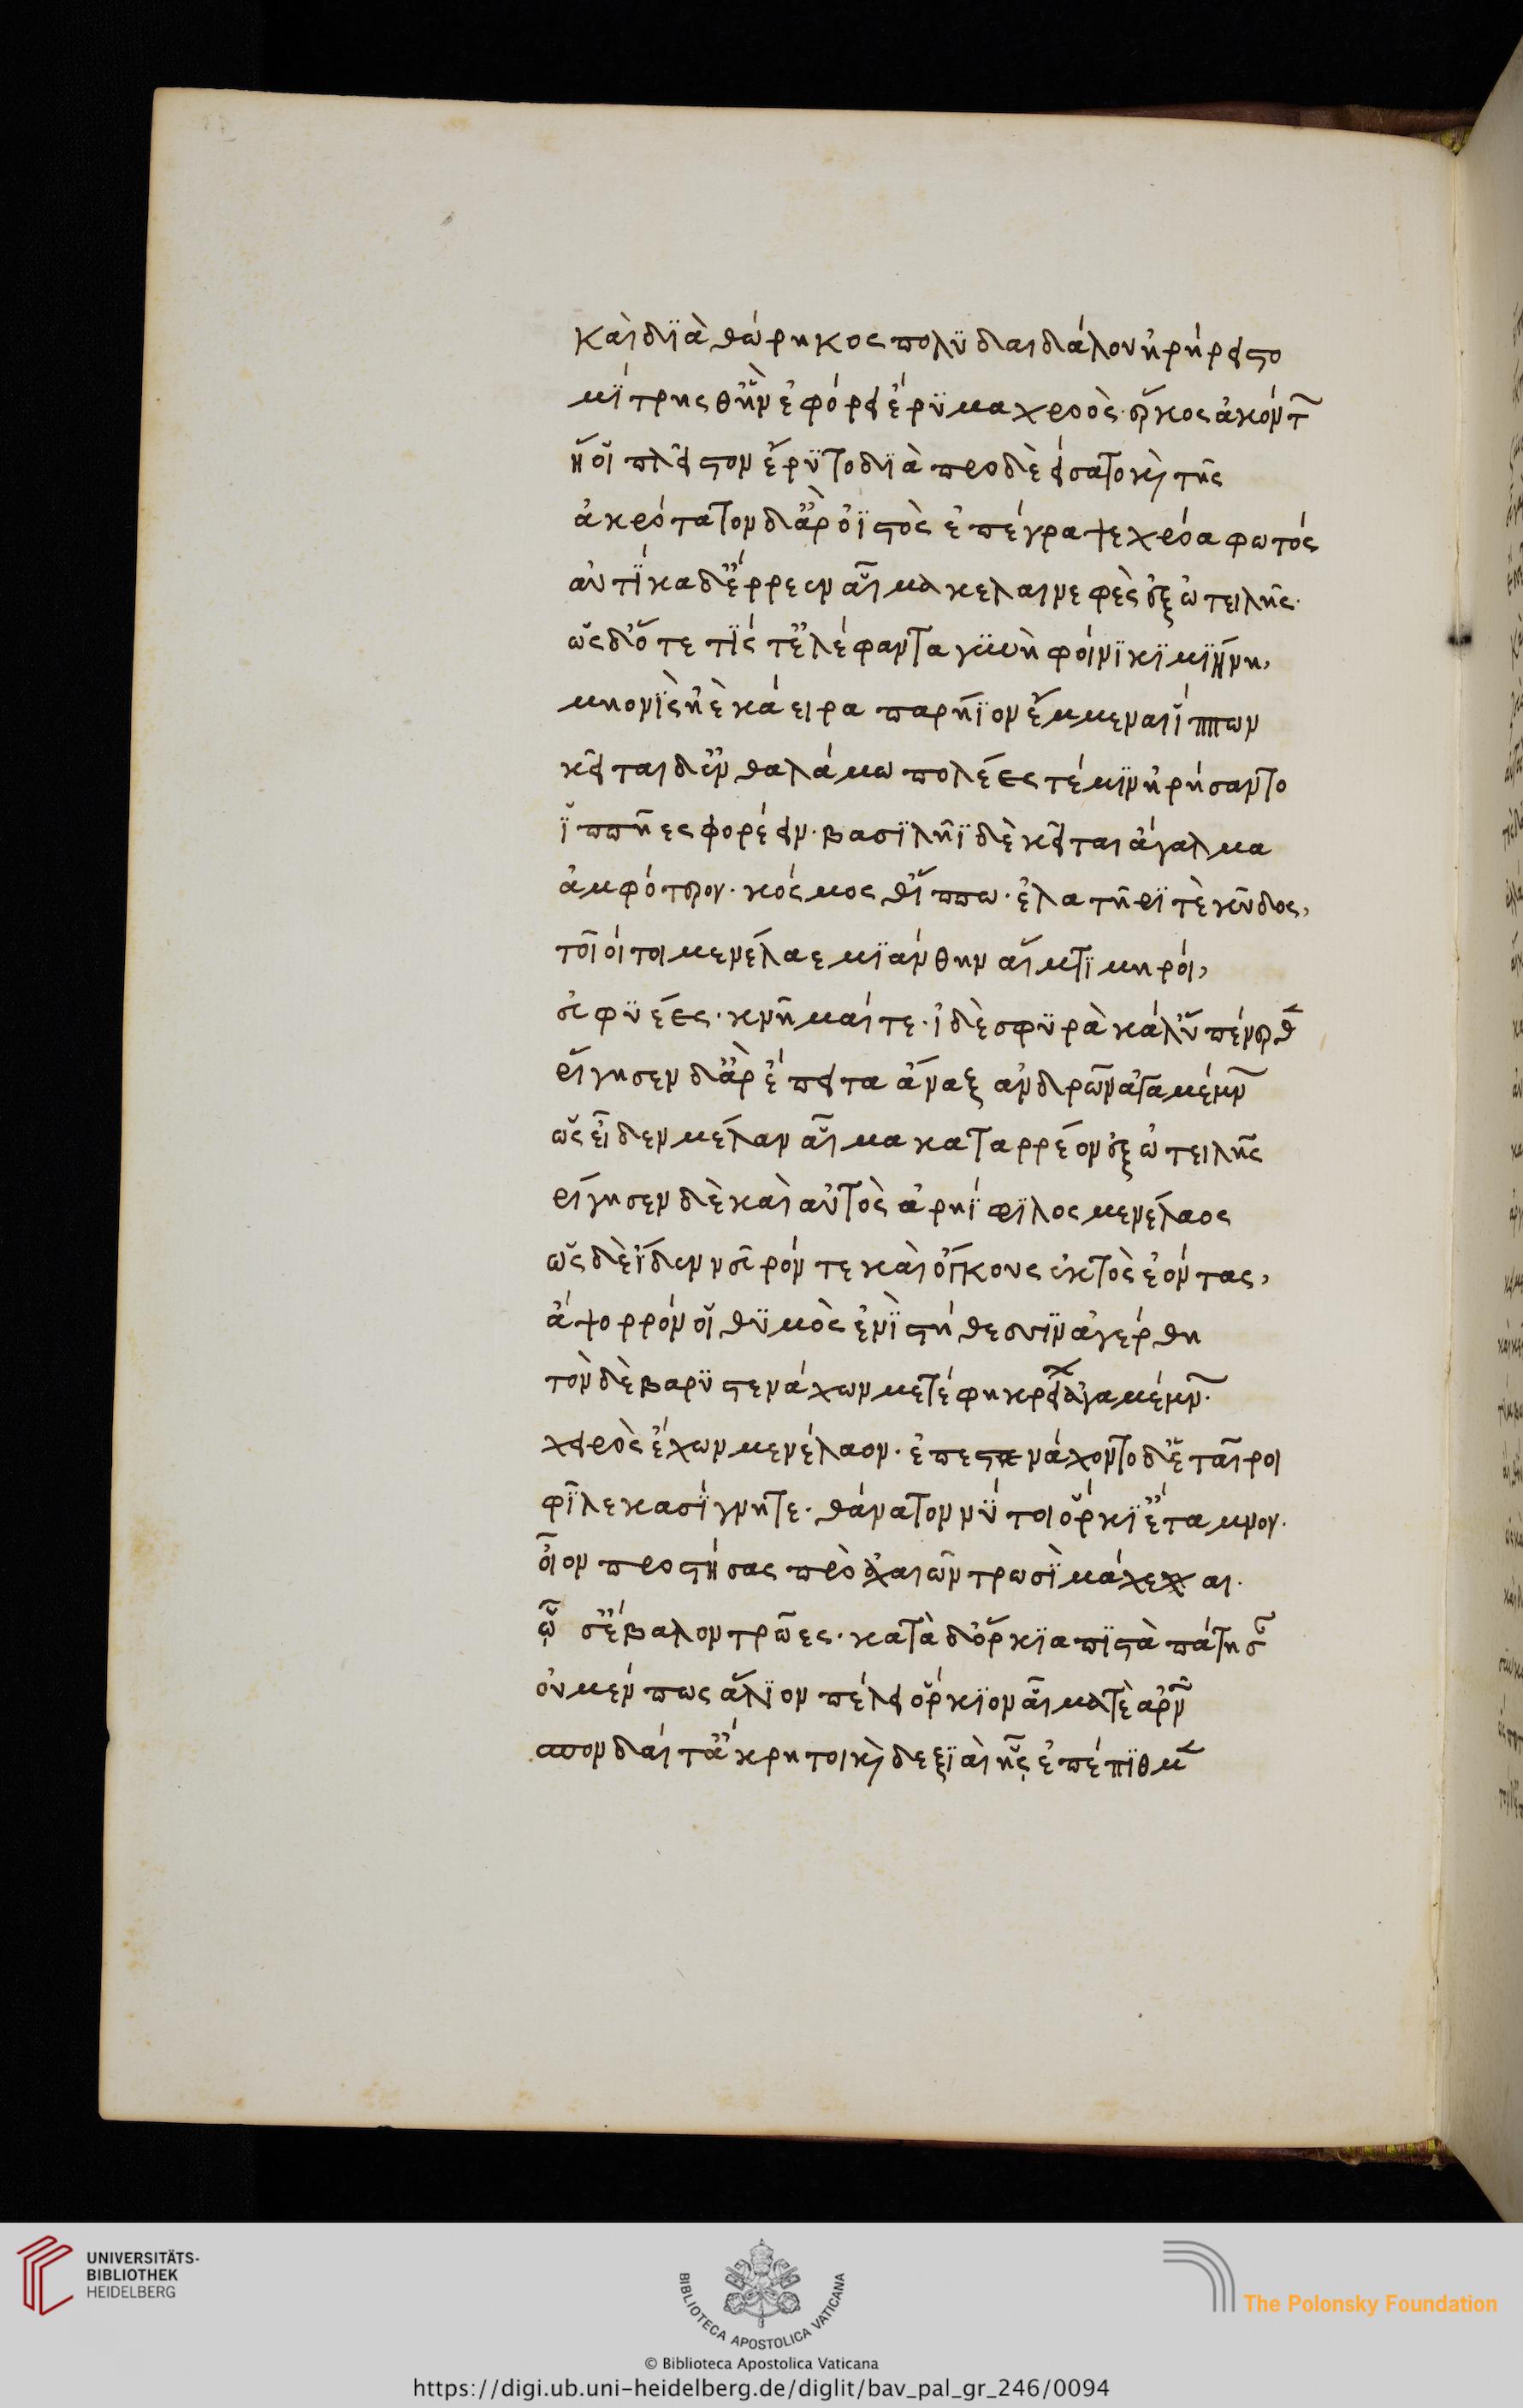 καὶ διὰ θώρηκος πολυδαιδάλου ἠρήρειστο
μίτρης θ' ἣν ἐφόρει ἔρυμα χροὸς· ἕρκος ἀκόντ
ἥ οἱ πλεῖστον ἔρυτο διὰ προ δὲ είσατο κὶ τῆς
ἀκρότατον δ' ἂρ ὀϊστὸς ἐπέγραψε χρόα φωτός
αὐτίκα δ' ἔρρεεν αἷμα κελαινεφὲς ἐξ ὠτειλῆς·
ὡς δ' ὅτε τίς τ' ἐλέφαντα γυνὴ φοίνικι μιήνη,
μηονὶς ἠὲ κάειρα παρήϊον ἔμμεναι ἵππων
κεῖται δ' ἐν θαλάμω πολέες τέ μιν ἠρήσαντο
ἱππῆες φορέειν· βασιλῆϊ δὲ κεῖται ἄγαλμα
ἀμφότερον· κόσμος θ' ἵππω· ἐλατῆρί τὲ κῦδος,
τοῖοί τοι μενέλαε μιάνθην αἵματι μηροί,
εὐφυέες· κνῆμαί τε· ἰδὲ σφυρὰ κάλ' ὑπένερθ
ῥίγησεν δ' ἂρ ἔπειτα ἄναξ ἀνδρῶν ἀγαμέμν
ὡς εἶδεν μέλαν αἷμα καταρρέον ἐξ ὠτειλῆς
ῥίγησεν δὲ καὶ αὐτὸς ἀρηΐφιλος μενέλαος
ὡς δὲ ἴδεν νεῦρόν τε καὶ ὄγκους ἐκτὸς ἐόντας,
ἄψορρόν οἱ θυμὸς ἐνὶ στήθεσιν ἀγέρθη
τὸν δὲ βαρυστενάχων μετέφη κρείων ἀγαμέμν·
χειρὸς ἔχων μενέλαον· ἐπεστενάχοντο δ' ἑταῖροι
φίλε κασίγνητε· θάνατον νύ τοι ὅρκι' ἔταμνον·
οἶον προστήσας πρὸ ἀχαιῶν τρωσὶ μάχεσθαι·
ὥς σ' ἔβαλον τρῶες· κατὰ δ' ὅρκια πιστὰ πάτησ
οὐ μέν πως ἅλιον πέλει ὅρκιον αἷμα τὲ ἀρν
σπονδαί τ' ἄκρητοι κὶ δεξιαὶ ἧς ἐπέπιθμ
UNIVERSITÄTS-
BIBLIOTHEK
HEIDELBERG
BIBLIOTECA APOSTOLICA VATICANA
The Polonsky Foundation
© Biblioteca Apostolica Vaticana
https://digi.ub.uni-heidelberg.de/diglit/bav_pal_gr_246/0094